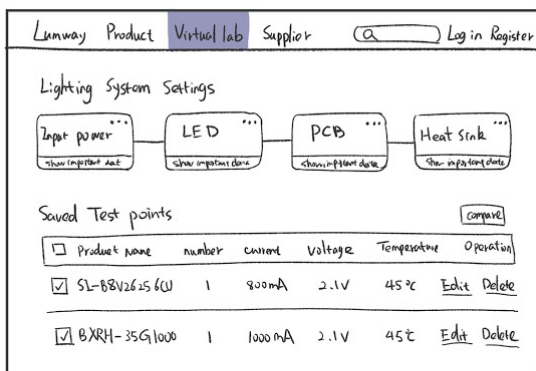 Lumway Product Virtual lab Supplier Log in Register
Lighting System Settings
Input power ... LED ... PCB ... Heat Sink ...
show important dat show important data show important data show important data
Saved Test points compare
Product Name number current Voltage Temperature Operation
1 800mA 2.1V 45℃ Edit Delete
BXRH-35G1000 1 1000mA 2.1V 45℃ Edit Delete